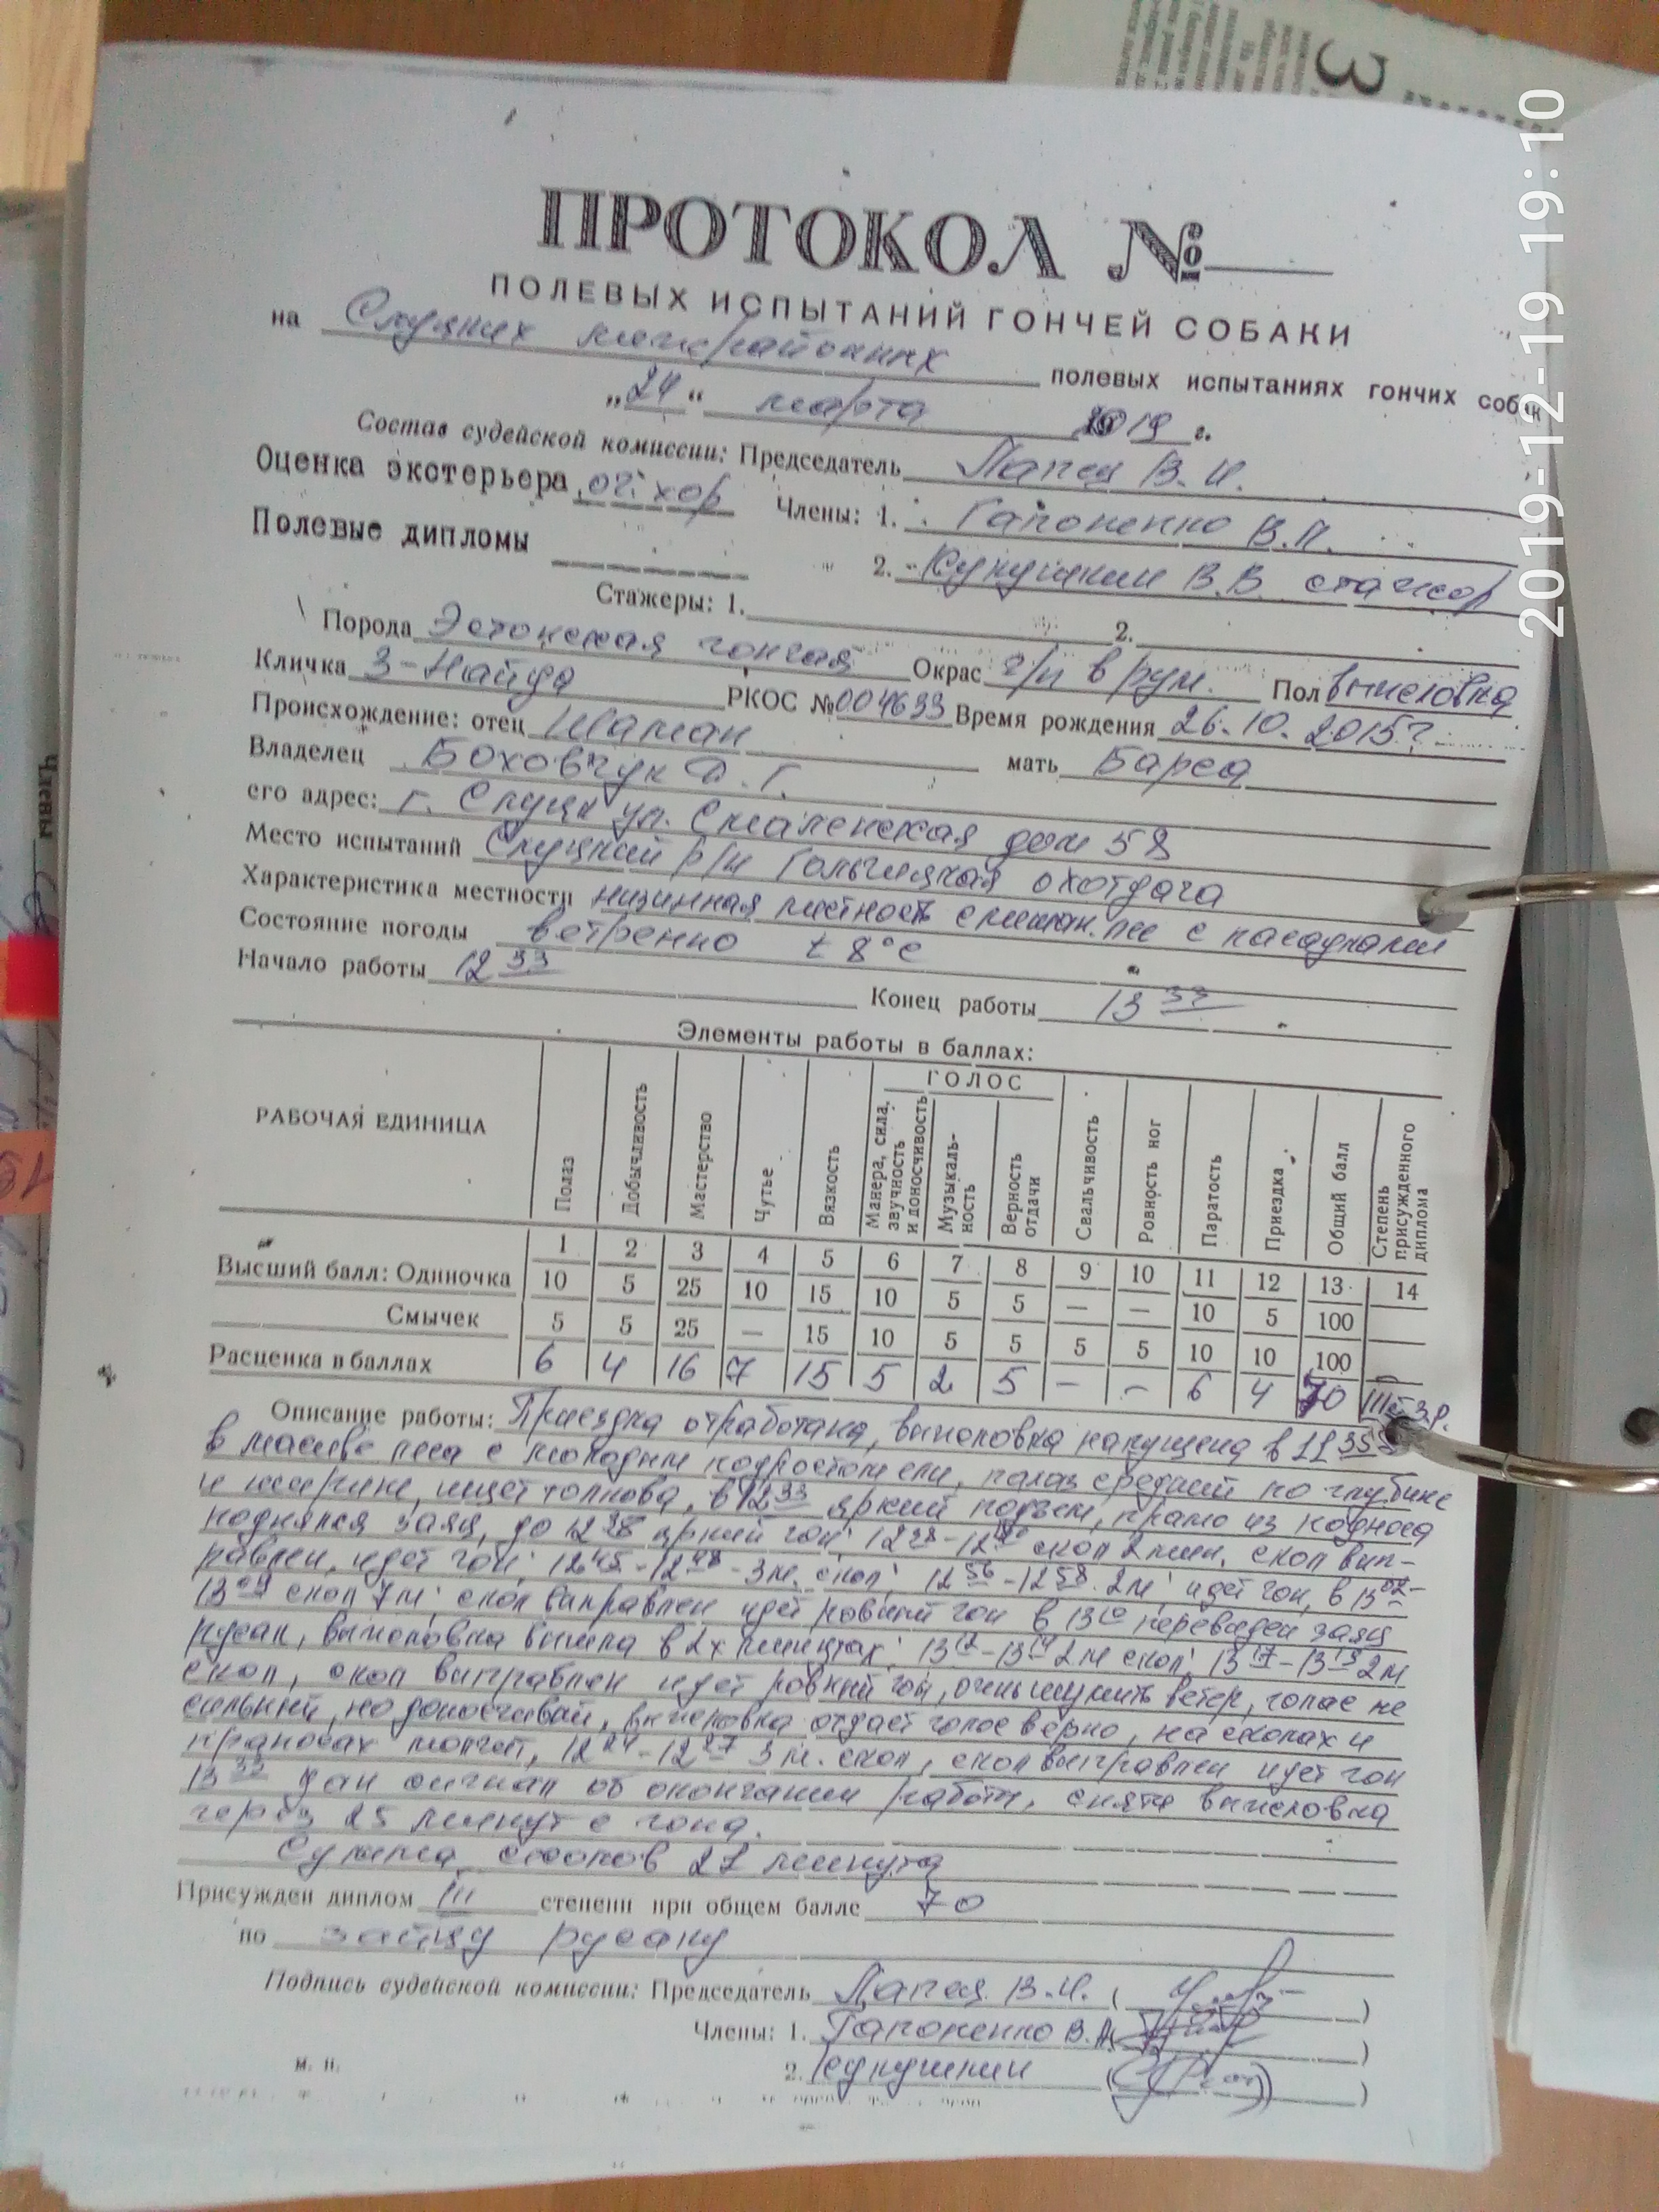 ПРОТОКОЛ №
ПОЛЕВЫХ ИСПЫТАНИЙ ГОНЧЕЙ СОБАКИ
на Слуцких межрайонных полевых испытаниях гончих собак
„24“ марта 2019 г.
Состав судейской комиссии: Председатель Лапец В.И.
Оценка экстерьера оч. хор Члены: 1. Гапоненко В.П.
Полевые дипломы 2. Кукушкин В.В. стажор
Стажеры: 1. 2.
Порода Эстонская гончая Окрас ч/п в рум. Пол выжловка
Кличка 3-Найда РКОС № 004633 Время рождения 26.10.2015г
Происхождение: отец Шаман мать Барса
Владелец Боховчук Д.Г.
его адрес: г. Слуцк ул. Смоленская дом 58
Место испытаний Слуцкий р/н охотдача
Характеристика местности низинная местность смешан. лес с посадками
Состояние погоды ветренно t 8°с
Начало работы 12 33 Конец работы 13 33
Элементы работы в баллах:
РАБОЧАЯ ЕДИНИЦА Полаз Добычливость Мастерство Чутье Вязкость ГОЛОС Манера, сила, звучность и доносчивость Музыкаль-ность Верность отдачи Свальчивость Ровность ног Паратость Приездка Общий балл Степень присужденного диплома
1 2 3 4 5 6 7 8 9 10 11 12 13 14
Высший балл: Одиночка 10 5 25 10 15 10 5 5 — — 10 5 100
Смычек 5 5 25 — 15 10 5 5 5 5 10 10 100
Расценка в баллах 6 4 16 7 15 5 2 5 — — 6 4 70 III ст З.Р.
Описание работы: Приездка отработана, выжловка напущена в 11 35
в масиве леса с молодым подростом ели, полаз средний по глубине
и ширине, ищет толково, в 12 33 яркий подъем, прямо из подноса
поднялся заяц, до 12 38 яркий гон; 12 38 - 12 40 скол 2 мин. скол вып-
равлен, идет гон; 12 45 - 12 48 - 3м. скол; 12 56 - 12 58 2м; идет гон, в 13 02 -
13 09 скол 7м; скол выправлен идет ровный гон в 13 10 перевиден заяц
русак, выжловка вышла в 2х минутах; 13 12 - 13 14 2м скол; 13 17 - 13 19 2м
скол, скол выправлен идет ровный гон, очень шумить ветер, голос не
сильный, но доносчивый, выжловка отдает голос верно, на сколах и
молчит, 12 24 - 12 27 3м. скол, скол выправлен идет гон
13 33 дан сигнал об окончании работы, снята выжловка
через 25 минут с гона.
Сумма сколов 21 минута
Присужден диплом III степени при общем балле 70
по зайцу русаку
Подпись судейской комиссии: Председатель Лапец В.И. ( )
Члены: 1. Гапоненко В.П. ( )
2. Кукушкин ( )
м. п.
2019-12-19 19:10
Члены
3